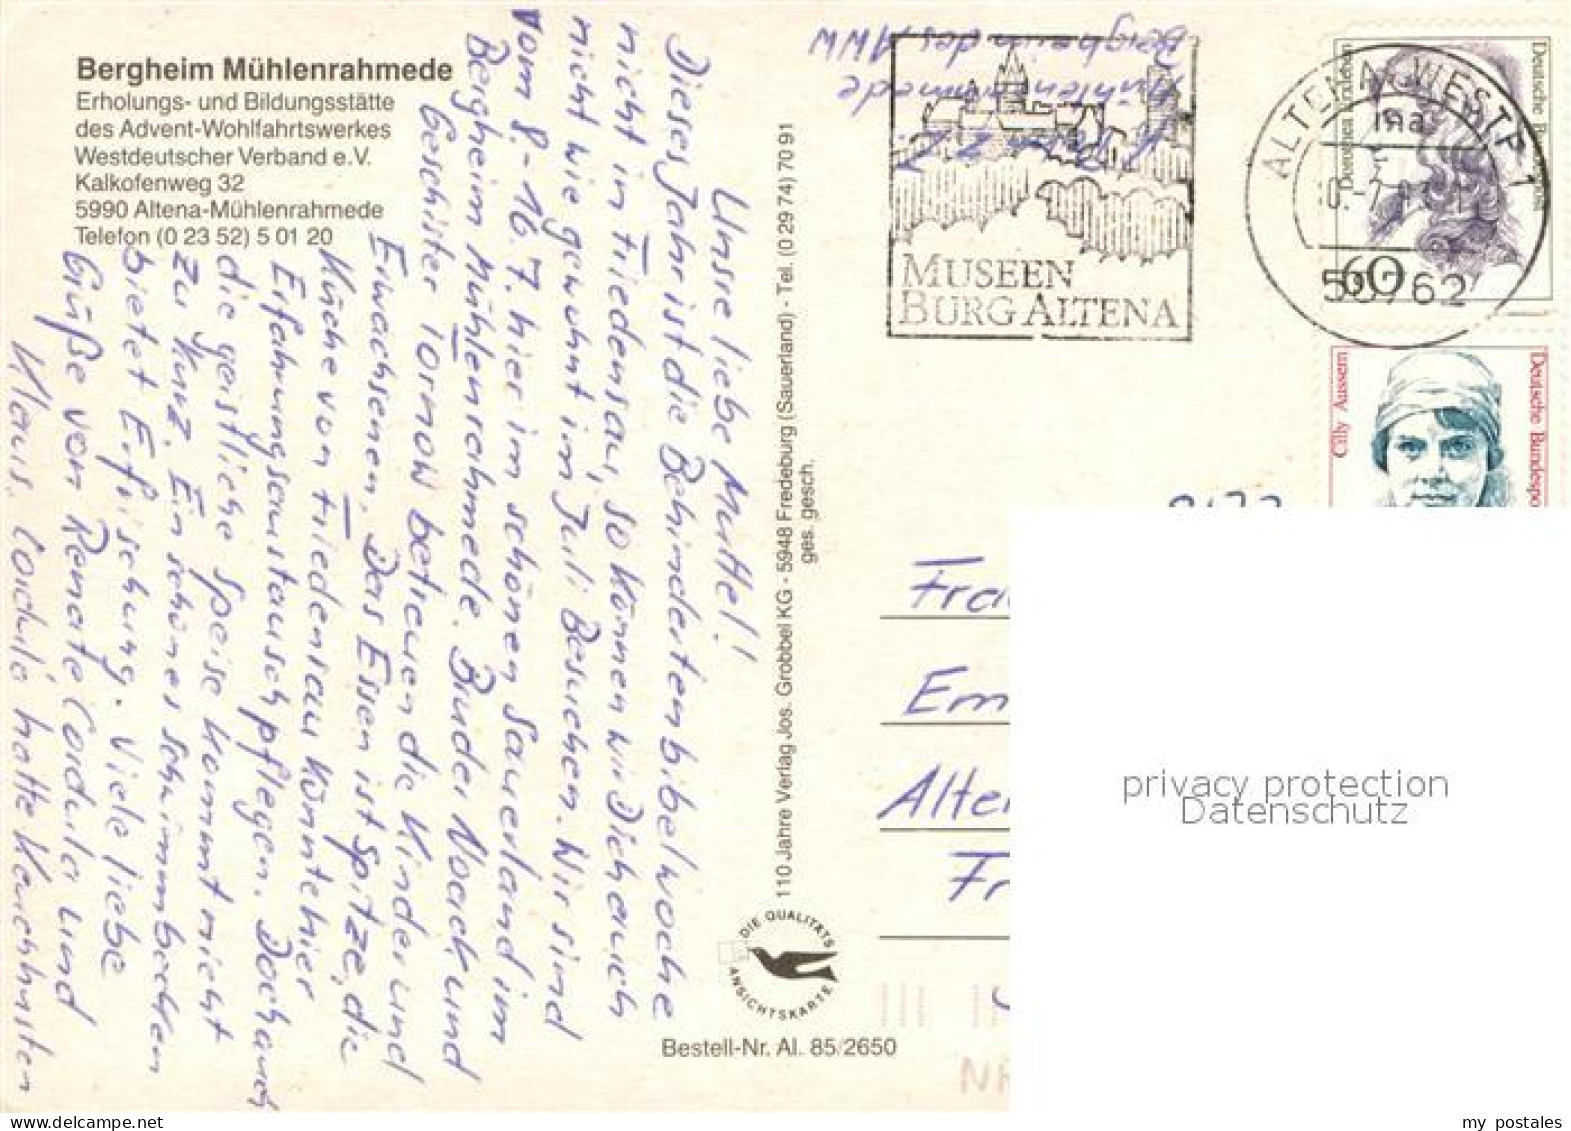 Bergheim Mühlenrahmede
Erholungs- und Bildungsstätte
des Advent-Wohlfahrtswerkes
Westdeutscher Verband e.V.
Kalkofenweg 32
5990 Altena-Mühlenrahmede
Telefon (0 23 52) 5 01 20
Unsre liebe Muttel!
Dieses Jahr ist die Behindertenbibelwoche
nicht in Friedensau, so können wir Dich auch
nicht wie gewohnt im Juli besuchen. Wir sind
vom 8.-16.7. hier im schönen Sauerland im
Bergheim Mühlenrahmede. Bruder Noack und
Geschister Tornow betreuen die Kinder und
Erwachsenen. Das Essen ist Spitze, die
Küche von Friedensau könnte hier
Erfahrungsaustausch pflegen. Doch auch
die geistliche Speise kommt nicht
zu kurz. Ein schönes schwimmbecken
bietet Erfrischung. Viele liebe
Grüße von Renate und
Klaus. hatte
110 Jahre Verlag Jos. Grobbel KG - 5948 Fredeburg (Sauerland) - Tel. (0 29 74) 70 91
ges. gesch.
DIE QUALITÄTS
ANSICHTSKARTE
Bestell-Nr. Al. 85/2650
Bergheim des AWW
Mühlenrahmede
MUSEEN
BURG ALTENA
ALTENA, WESTF 1
58762
Deutsche Bundespost
60
Cilly Aussem
Deutsche Bundespo
Em
Alte
Fr
privacy protection
Datenschutz
www.delcampe.net
my_postales